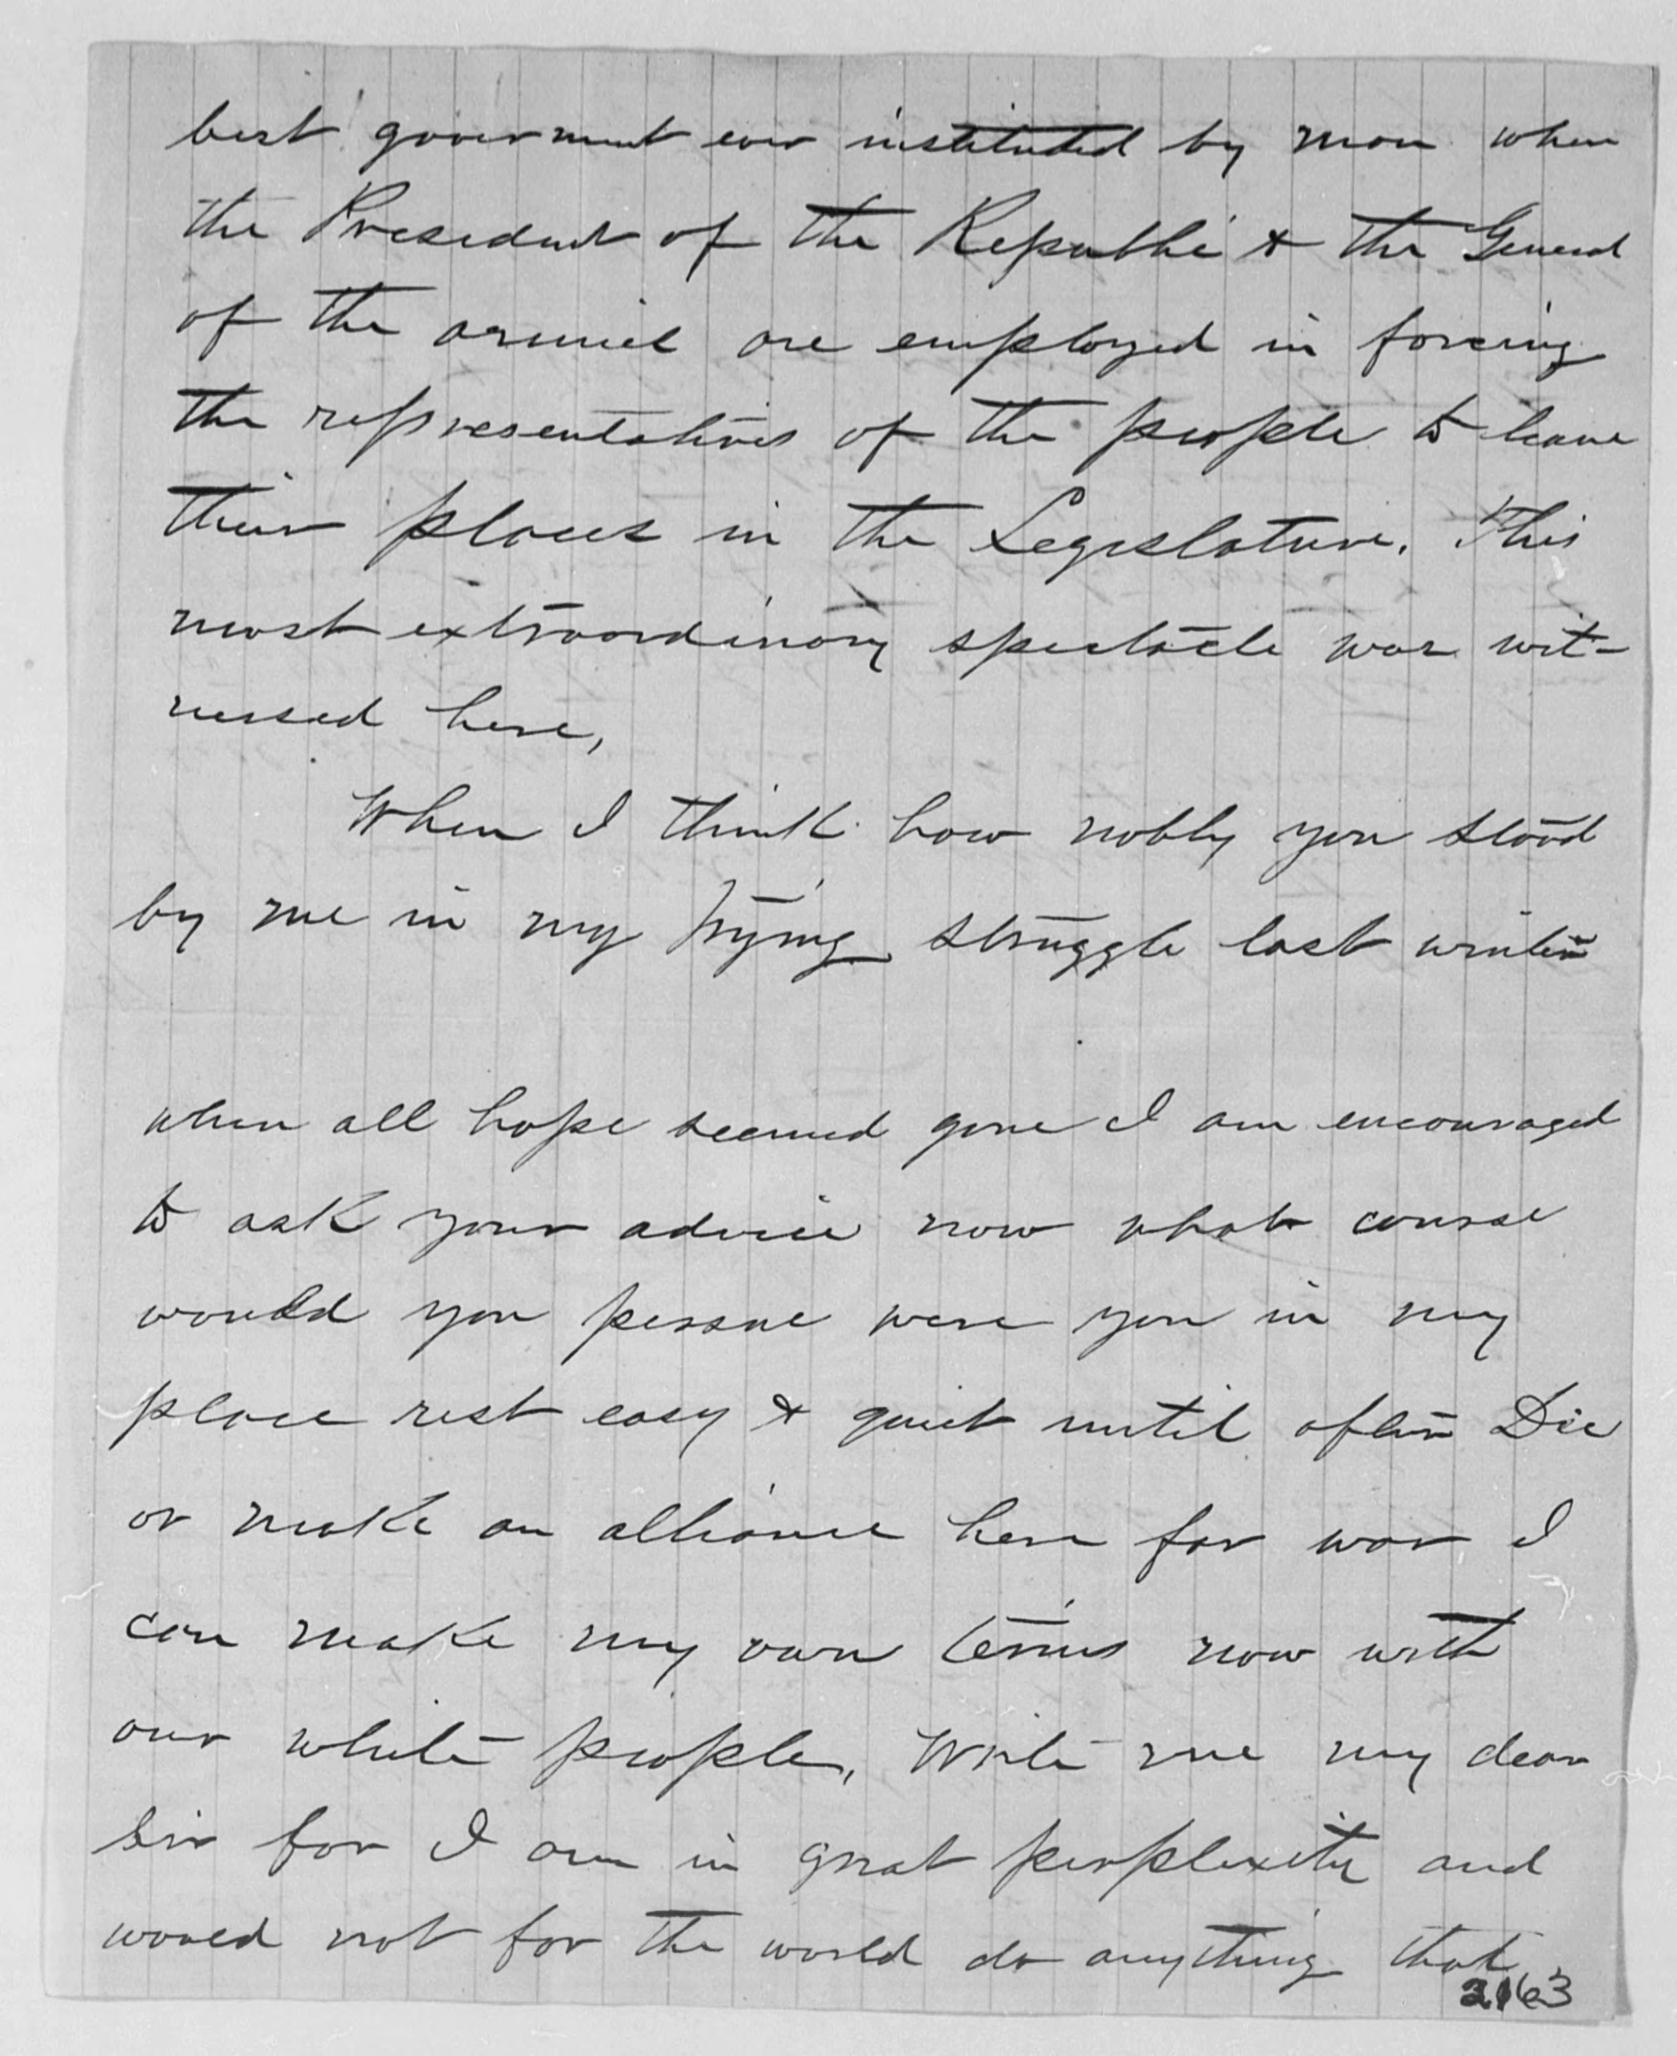 best goverment ever instituted by man when
the President of the Republic & the General
of the armies are employed in forcing
the representatives of the people to leave
their places in the Legislature. This
most extraordinary spectacle was wit-
nessed here,
When I think how nobly you stood
by me in my trying struggle last winter
when all hope seemed gone I am encouraged
to ask your advice now what course
would you persue were you in my
place rest easy & quiet until after Dec
or make an alliance here for war I
can make my own terms now with
our white people, Write me my dear
Sir for I am in great perplexity and
would not for the world do anything that
2163